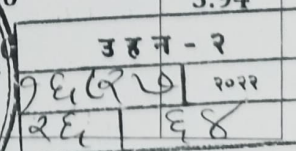 उ ह न - २
१६८२७ २०२२
२६ ६४